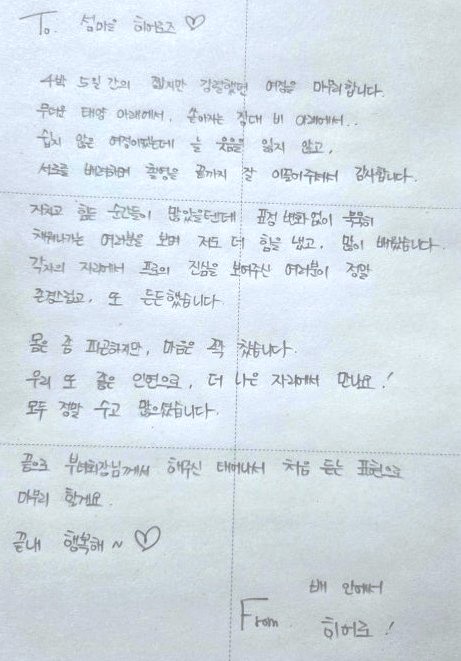 To. 섬마을 히어로즈 ♡
4박 5일간의 짧지만 강렬했던 여정을 마무리합니다.
무더운 태양 아래에서, 쏟아지는 장대 비 아래에서..
쉽지 않은 여정이었는데 늘 웃음을 잃지 않고,
서로를 배려하며 촬영을 끝까지 잘 이끌어주셔서 감사합니다.
지치고 힘든 순간들이 많았을텐데 표정 변화 없이 묵묵히
채워나가는 여러분을 보며 저도 더 힘을 냈고, 많이 배웠습니다.
각자의 자리에서 프로의 진심을 보여주신 여러분이 정말
존경스럽고, 또 든든했습니다
몸은 좀 피곤하지만, 마음은 꽉 찼습니다.
우리 또 좋은 인연으로, 더 나은 자리에서 만나요!
모두 정말 수고 많으셨습니다.
끝으로 부녀회장님께서 해주신 태어나서 처음 듣는 표현으로
마무리 할게요.
끝내 행복해 ~ ♡
배 안에서
From. 히어로!